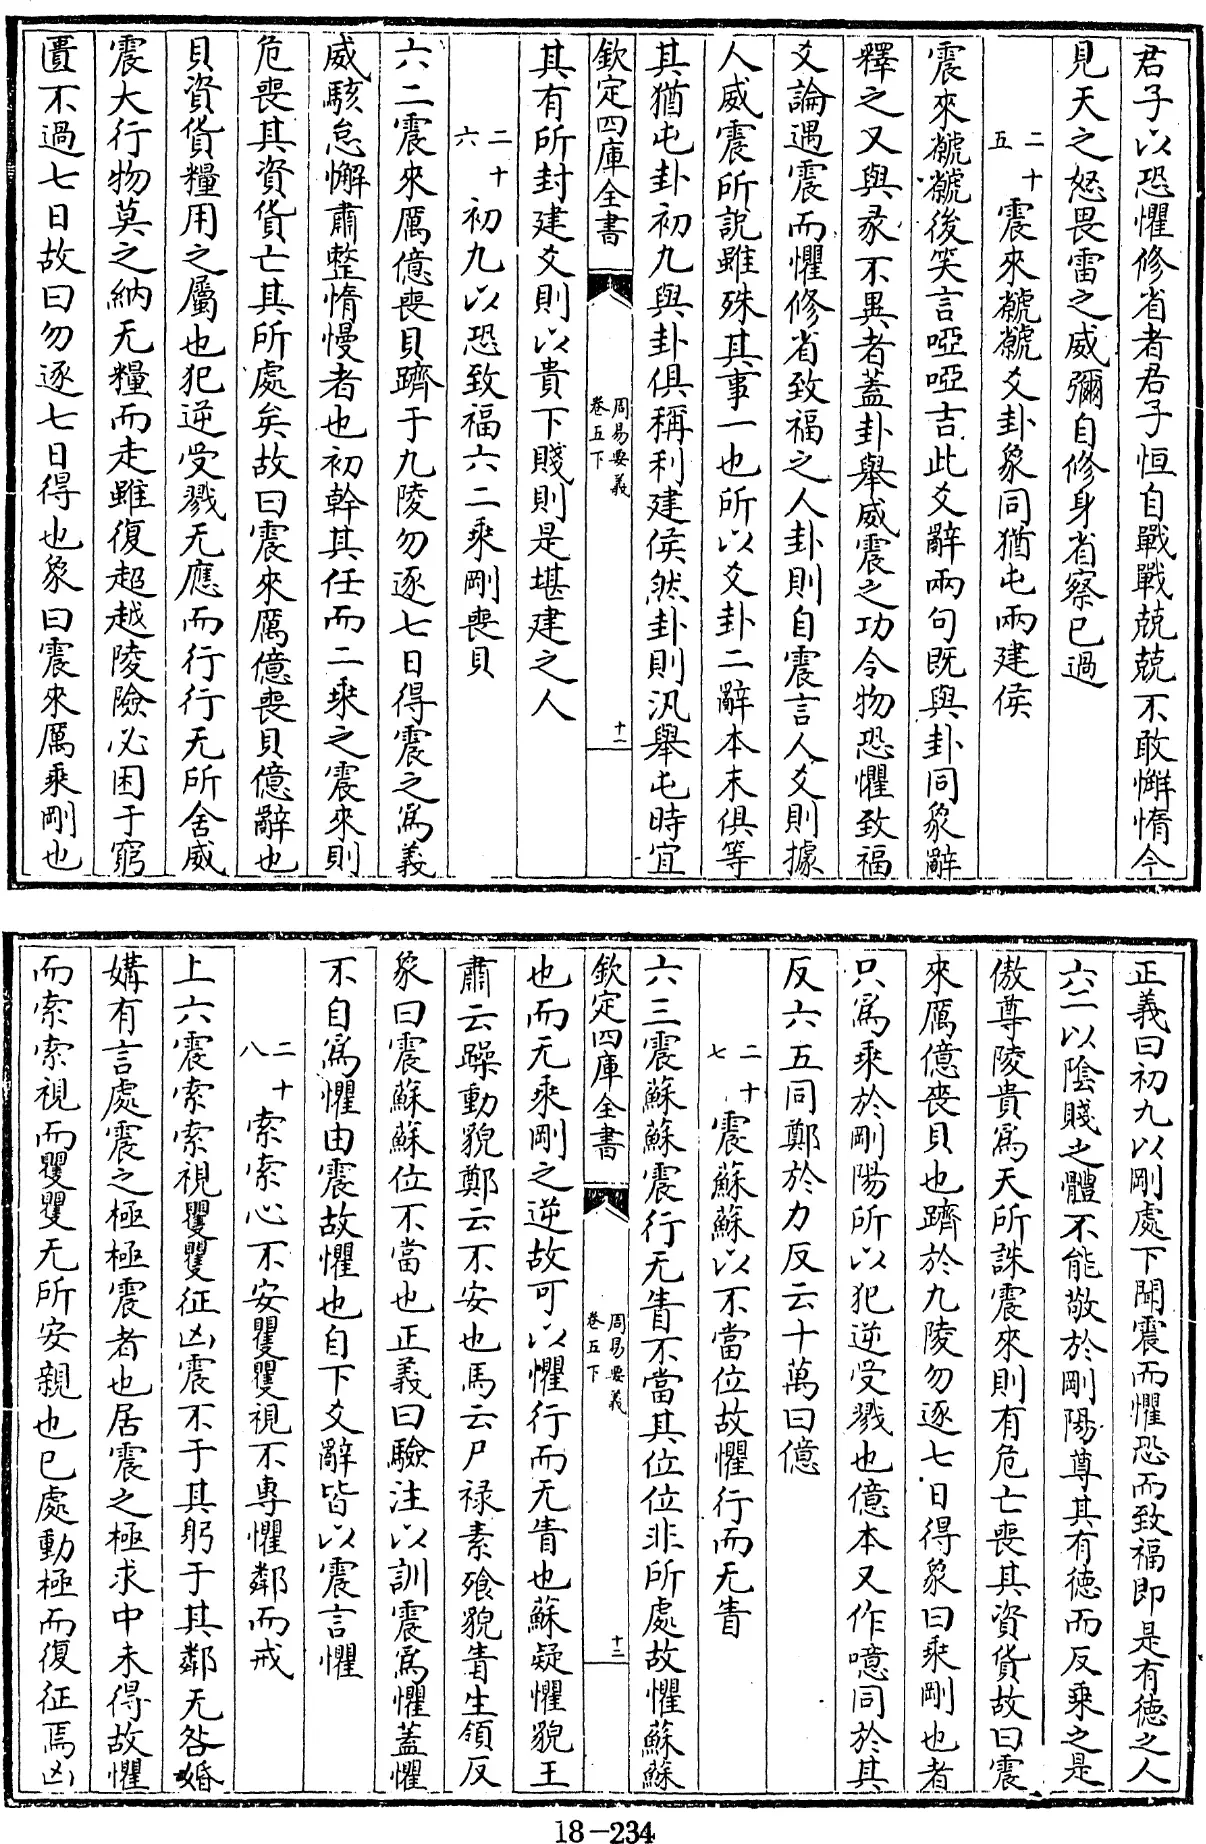 君子以恐懼修省者君子恒自戰戰兢兢不敢懈惰今
見天之怒畏雷之威彌自修身省察已過
二十五 震來虩虩爻卦象同猶屯兩建侯
震來虩虩後笑言啞啞吉此爻辭兩句既與卦同象辭
釋之又與彖不異者蓋卦舉威震之功令物恐懼致福
爻論遇震而懼修省致福之人卦則自震言人爻則據
人威震所說雖殊其事一也所以爻卦二辭本末俱等
其猶屯卦初九與卦俱稱利建侯然卦則汎舉屯時宜
欽定四庫全書 周易要義 卷五下 十一
其有所封建爻則以貴下賤則是堪建之人
二十六 初九以恐致福六二乘剛喪貝
六二震來厲億喪貝躋于九陵勿逐七日得震之為義
威駭怠懈肅整惰慢者也初幹其任而二乘之震來則
危喪其資貨亡其所處矣故曰震來厲億喪貝億辭也
貝資貨糧用之屬也犯逆受戮无應而行行无所舍威
震大行物莫之納无糧而走雖復超越陵險必困于窮
匱不過七日故曰勿逐七日得也象曰震來厲乘剛也
正義曰初九以剛處下聞震而懼恐而致福即是有德之人
六二以陰賤之體不能敬於剛陽尊其有德而反乘之是
傲尊陵貴為天所誅震來則有危亡喪其資貨故曰震
來厲億喪貝也躋於九陵勿逐七日得象曰乘剛也者
只為乘於剛陽所以犯逆受戮也億本又作噫同於其
反六五同鄭於力反云十萬曰億
二十七 震蘇蘇以不當位故懼行而无眚
六三震蘇蘇震行无眚不當其位位非所處故懼蘇蘇
欽定四庫全書 周易要義 卷五下 十二
也而无乘剛之逆故可以懼行而无眚也蘇疑懼貌王
肅云躁動貌鄭云不安也馬云尸禄素飱貌眚生領反
象曰震蘇蘇位不當也正義曰驗注以訓震為懼蓋懼
不自為懼由震故懼也自下爻辭皆以震言懼
二十八 索索心不安矍矍視不專懼鄰而戒
上六震索索視矍矍征凶震不于其躬于其鄰无咎婚
媾有言處震之極極震者也居震之極求中未得故懼
而索索視而矍矍无所安親也已處動極而復征焉凶
18-234